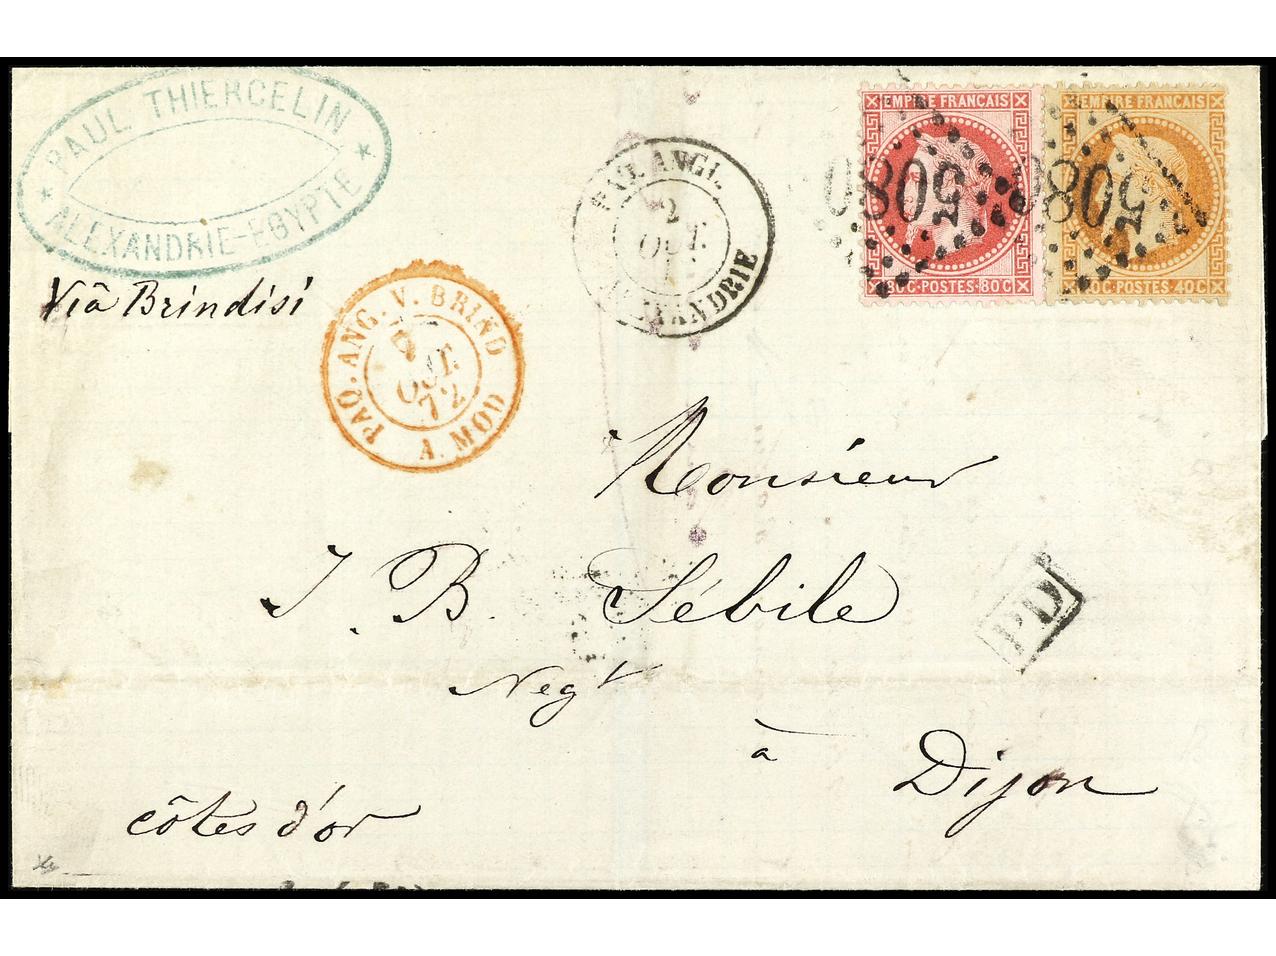 PAUL THIERCELIN
* ALEXANDRIE-EGYPTE *
EMPIRE FRANÇAIS
80C-POSTES-80C
EMPIRE FRANÇAIS
POSTES.40C
5080
5080
ANGL.
2
OCT.
ALEXANDRIE
Viâ Brindisi
PAQ. ANG. V. BRIND
OCT.
72
A. MOD
Monsieur
J. B. Sébile
Negt
PD
à
Dijon
côtes d'or